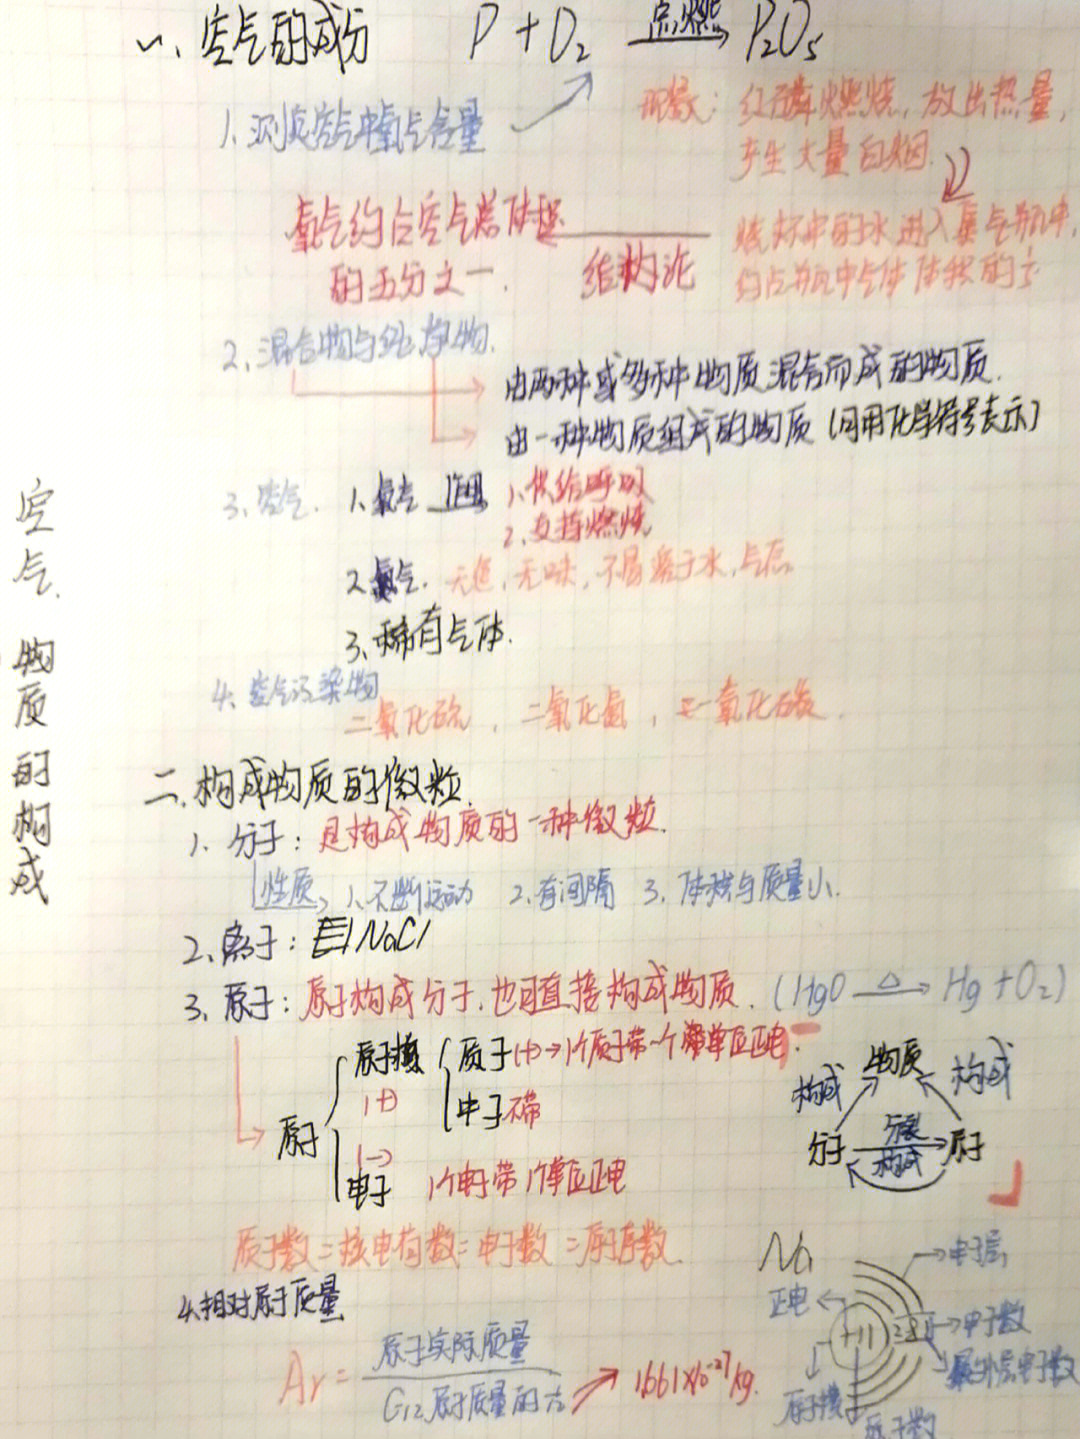 空气、物质的构成
一、空气的成分 P + O₂ 点燃→ P₂O₅
1. 测定空气中氧气含量
现象：红磷燃烧，放出热量，
产生大量白烟.
氧气约占空气总体积
的五分之一.
结论
烧杯中的水进入集气瓶中，
约占瓶中气体体积的
2、混合物与纯净物.
由两种或多种物质混合而成的物质.
由一种物质组成的物质（可用化学符号表示）
3、空气. 1、氧气 作用 1、供给呼吸
2、支持燃烧
2、氮气. 无色，无味，不易溶于水，气体
3、稀有气体.
4、空气污染物
二氧化硫，二氧化氮，一氧化碳.
二、构成物质的微粒
1、分子：是构成物质的一种微粒.
性质 1、不断运动 2、有间隔 3、体积与质量小.
2、离子：NaCl
3、原子：原子构成分子，也可直接构成物质.（HgO △→ Hg + O₂）
原子核 质子(+)→1个质子带一个单位正电.
(+)
中子 不带
原子
(-)
电子 1个电子带1个单位正电
物质
构成 构成
分子 分裂 原子
构成
质子数=核电荷数=电子数=原子序数.
4、相对原子质量
Ar = 原子实际质量
C12原子质量的
1.661×10⁻²⁷kg.
Na
电子层
正电
+11 2 8 1
电子数
最外层电子数
原子核
质子数